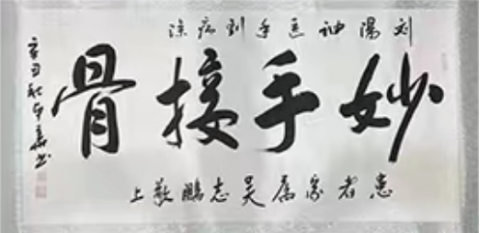 刘阳神医手到病除
妙手接骨
患者家属吴志鹏敬上
辛丑秋